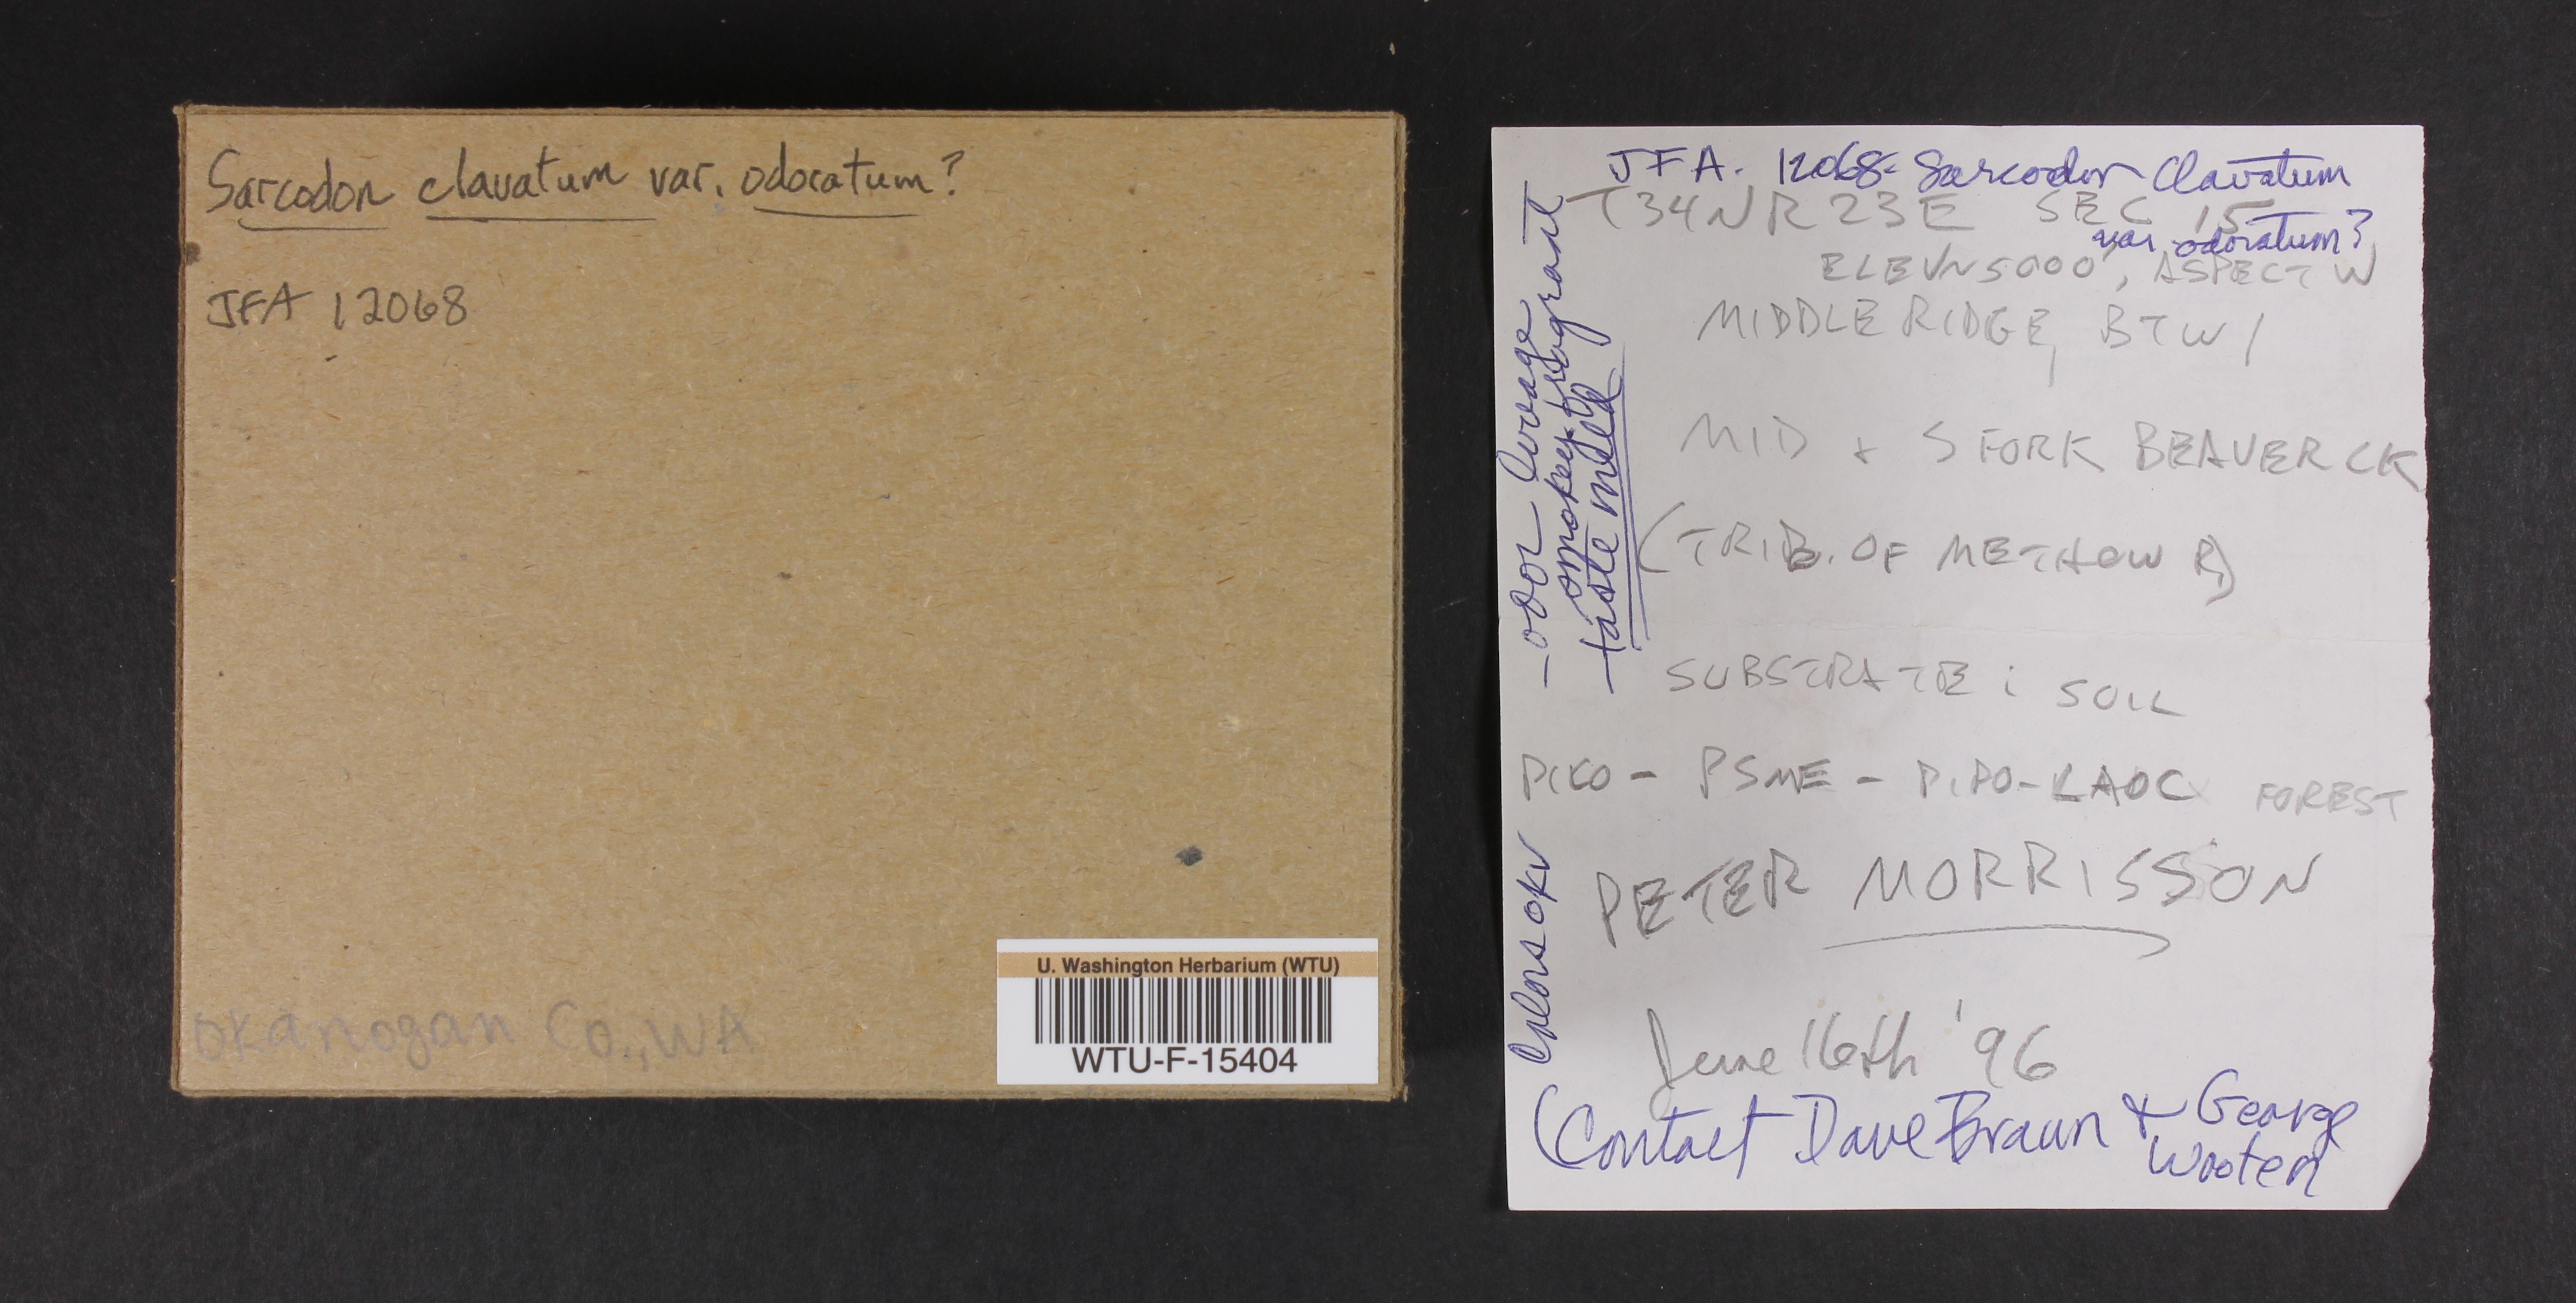 Sarcodon clavatum var. odoratum?
JFA 12068
Okanogan Co., WA
U. Washington Herbarium (WTU)
WTU-F-15404
JFA. 12068 - Sarcodon Clavatum
var. odoratum?
T34N R23E SEC 15
ELEVN 5000', ASPECT W
MIDDLE RIDGE, BTW/
MID + S FORK BEAVER CK
(TRIB. OF METHOW R)
SUBSTRATE: SOIL
PICO - PSME - PIPO - LAOC FOREST
PETER MORRISSON
June 16th '96
(Contact Dave Braun & George
Wooten
- odor lovage
smokey-fragrant
- taste mild
Colors OKV